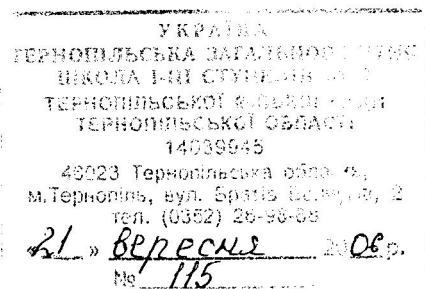 УКРАЇНА
ТЕРНОПІЛЬСЬКА
ШКОЛА І-ІІІ СТУПЕНІВ
ТЕРНОПІЛЬСЬКОЇ
ТЕРНОПІЛЬСЬКОЇ ОБЛАСТІ
14039945
46023 Тернопільська
м.Тернопіль, вул. Братів 2
тел. (0352) 26-98-
«21» вересня 2006 р.
№ 115